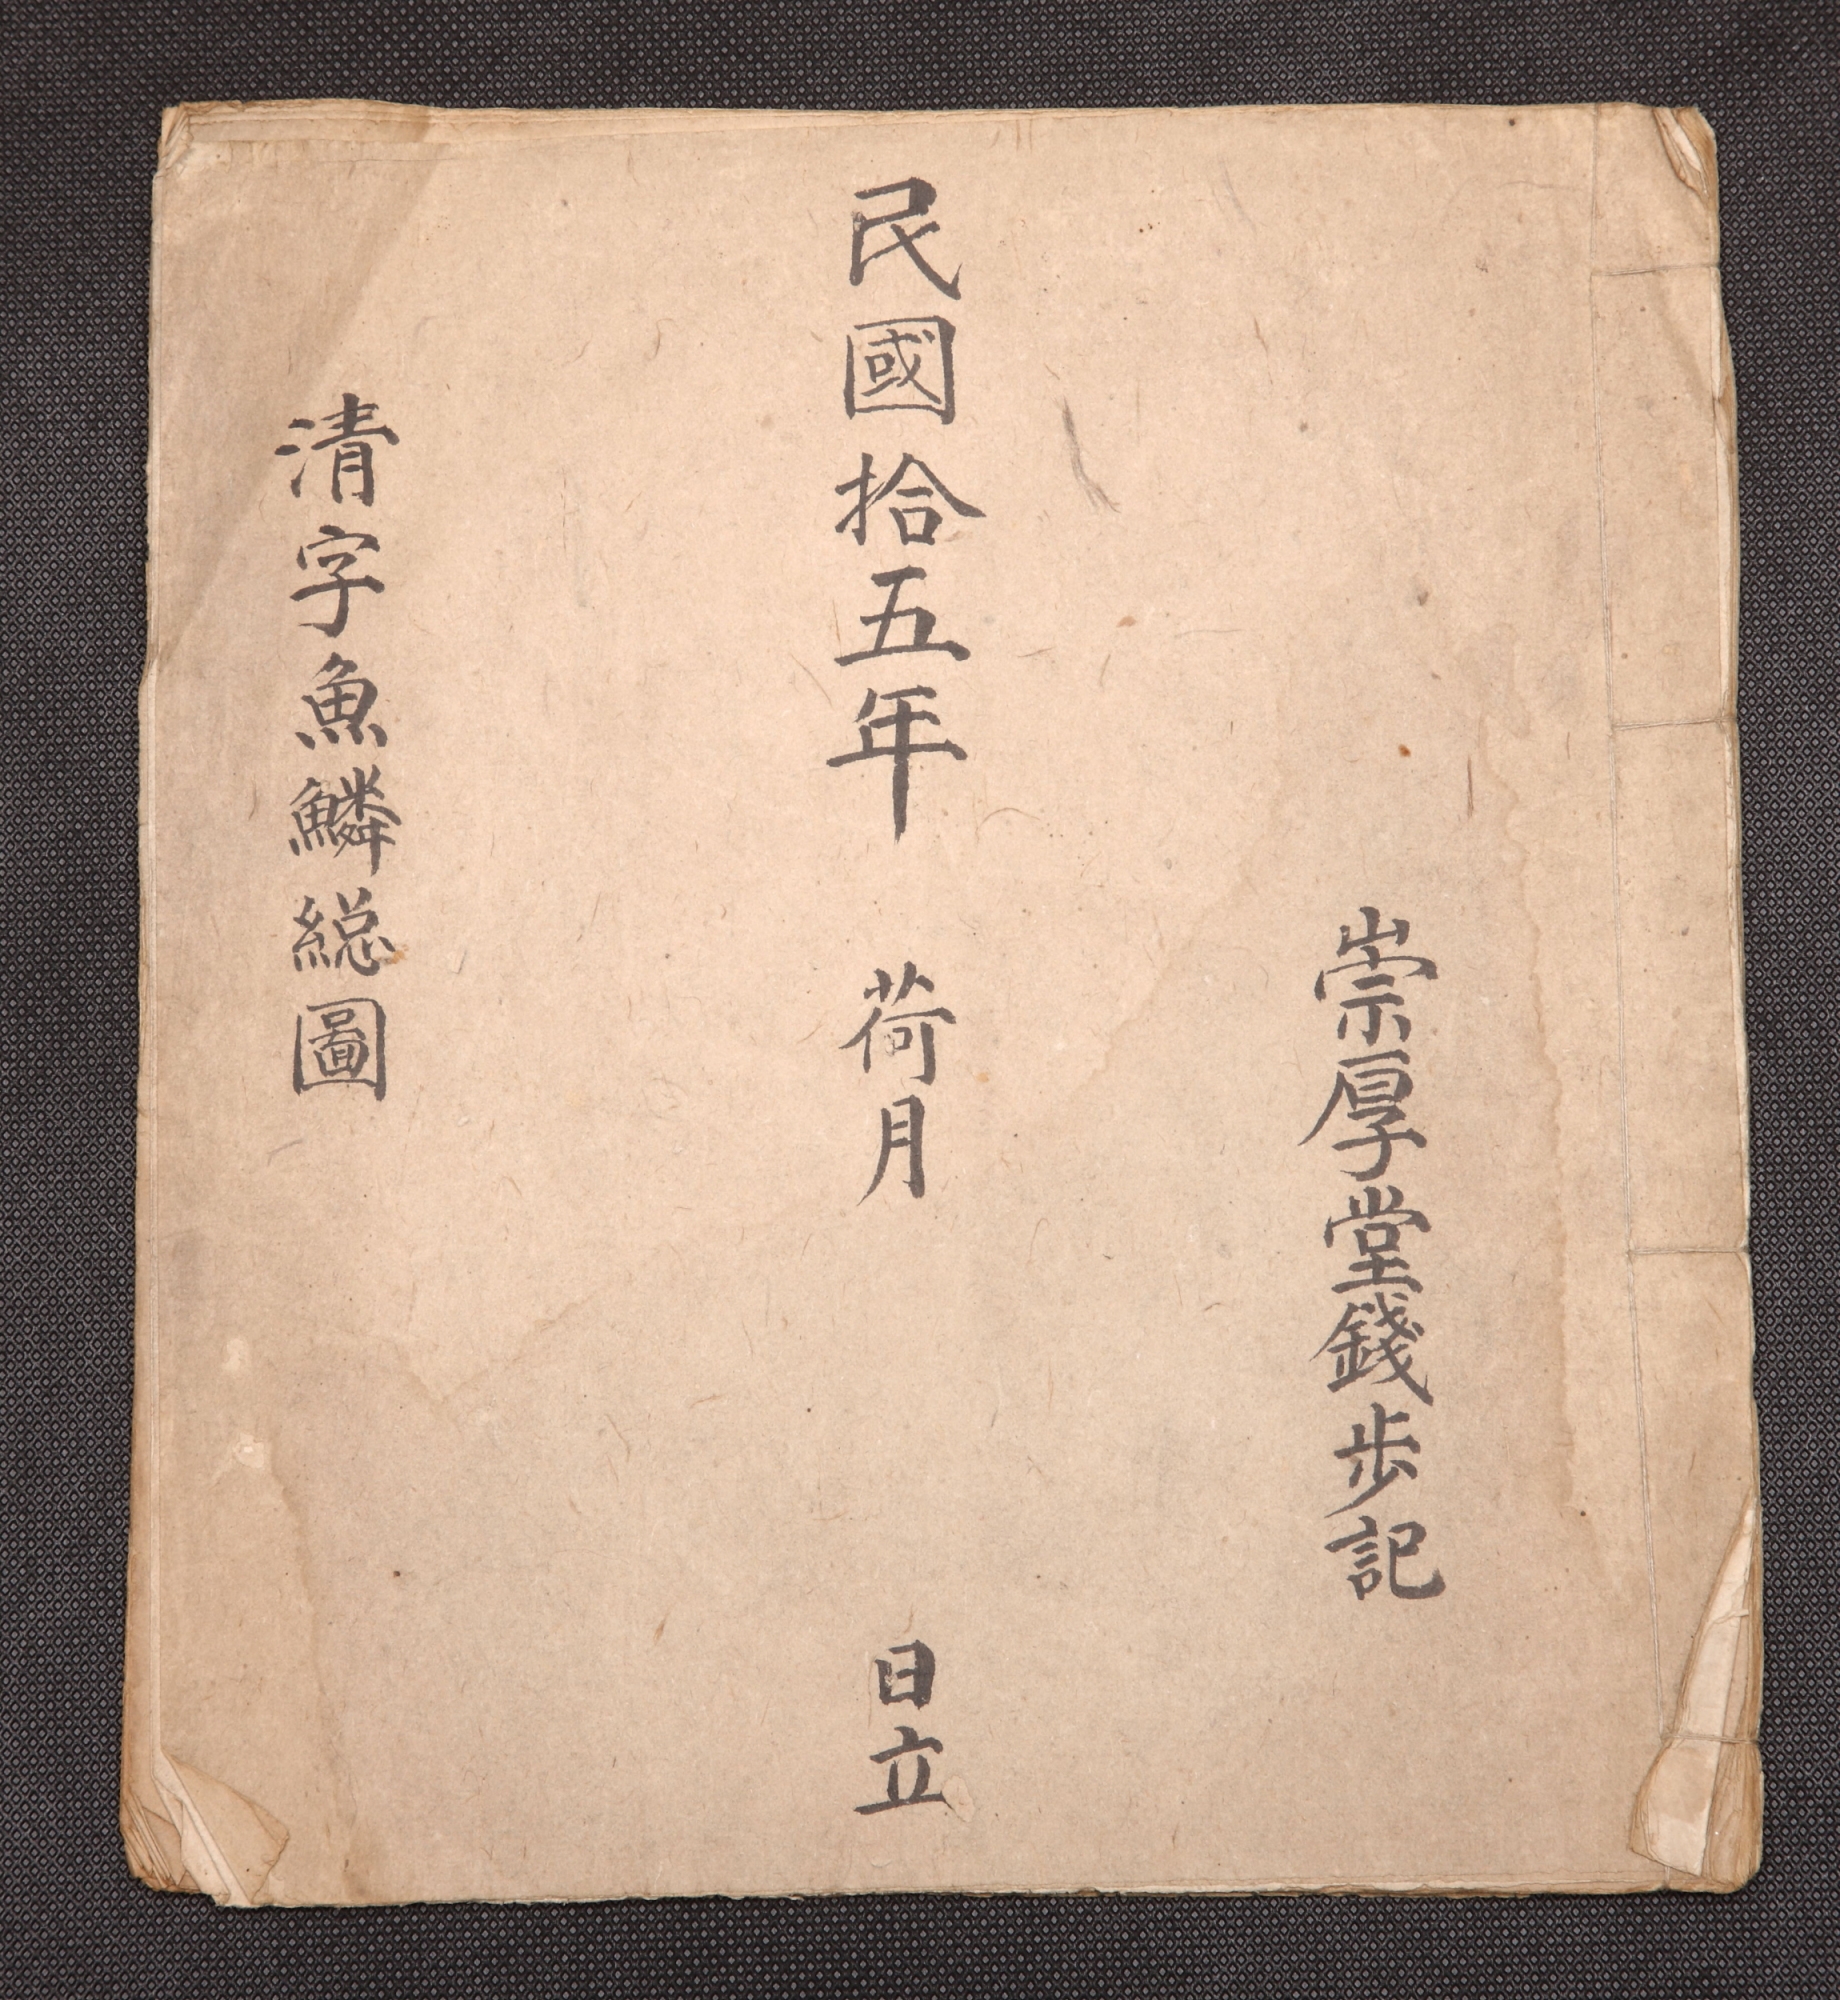 崇厚堂錢步記
民國拾五年 荷月 日立
清字魚鱗総圖